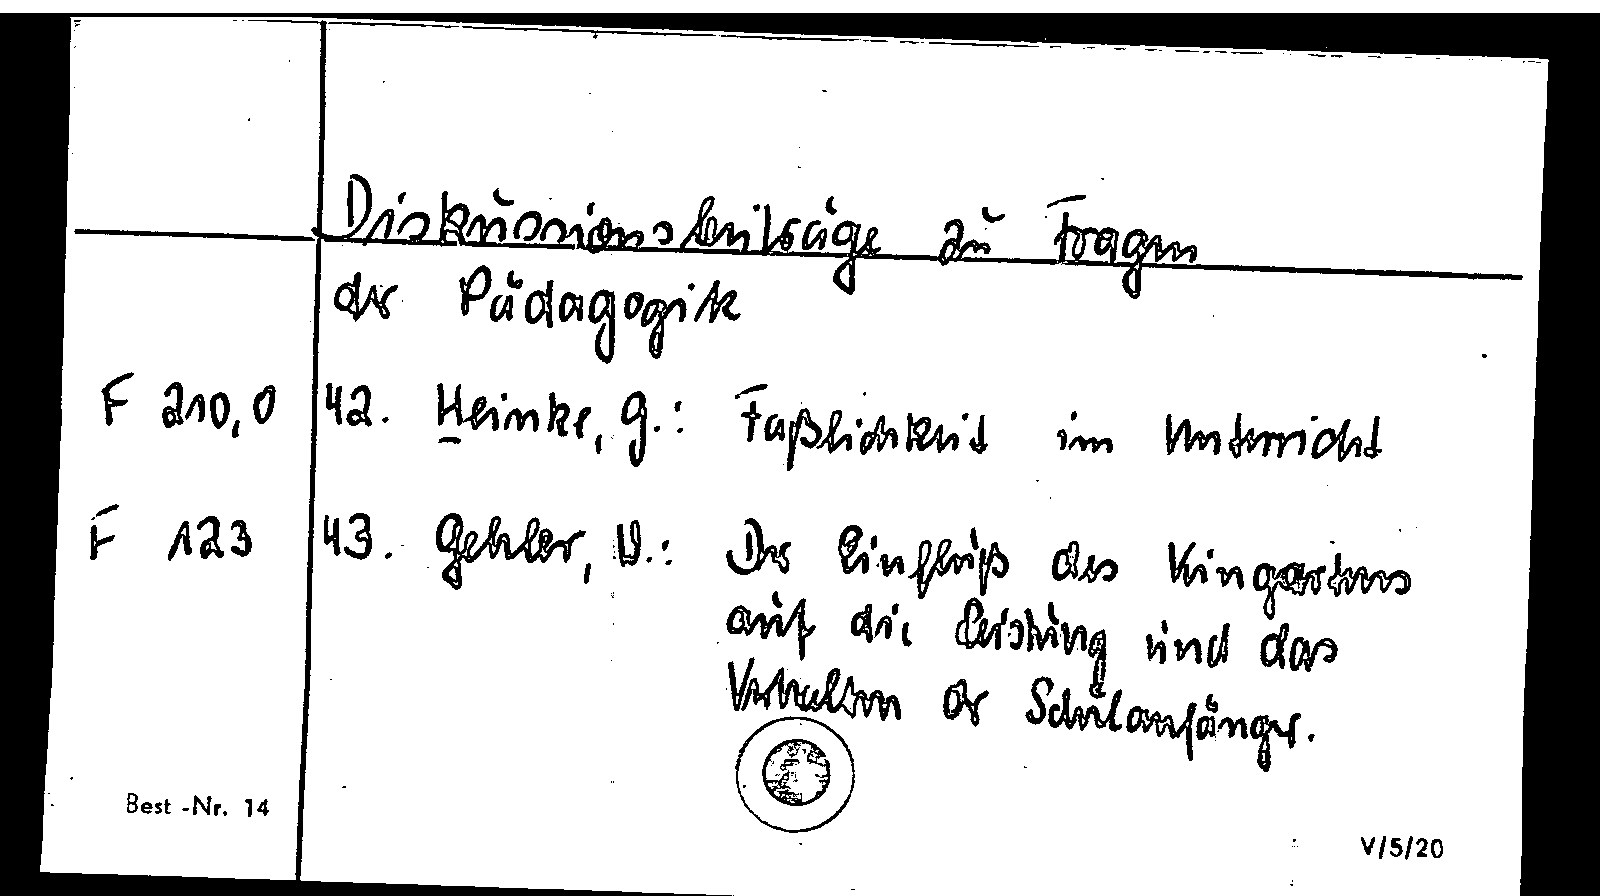 Diskussionsbeiträge zu Fragen
der Pädagogik
F 210,0 42. Heinke, G.: Faßlichkeit im Unterricht
F 123 43. Gehler, W.: Der Einfluß des Kingartens
auf die Leistung und das
Verhalten der Schulanfänger.
Best -Nr. 14
V/5/20